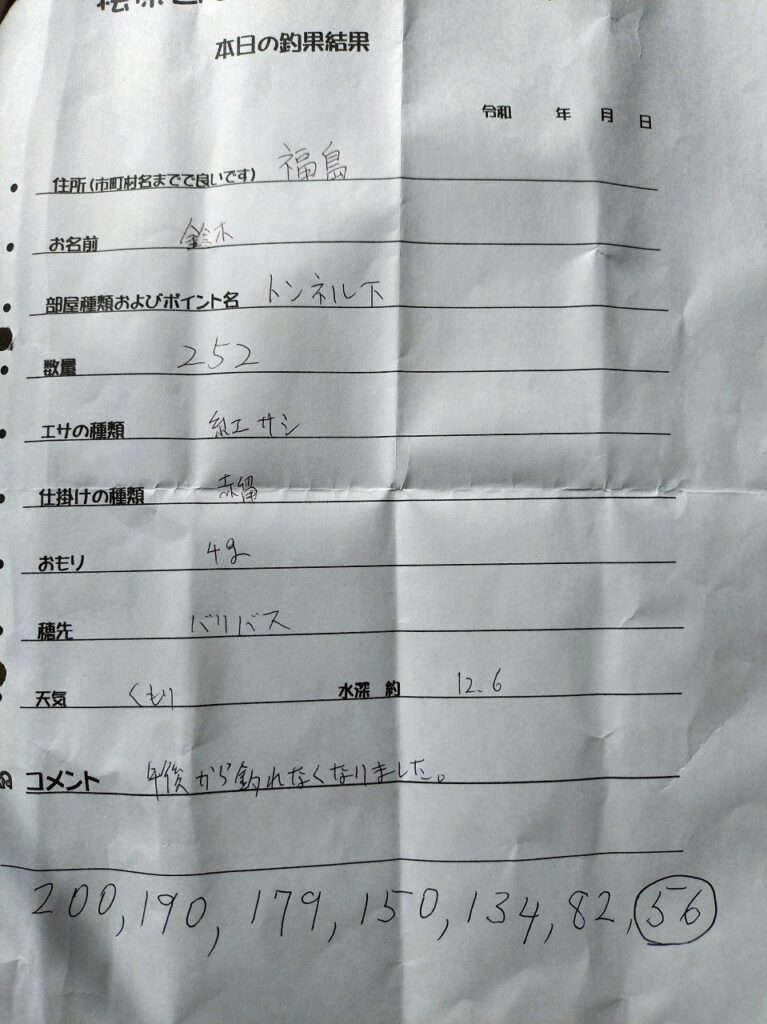 本日の釣果結果
令和 年 月 日
住所(市町村名までで良いです) 福島
お名前 鈴木
部屋種類およびポイント名 トンネル下
数量 252
エサの種類 紅サシ
仕掛けの種類 赤留
おもり 4g
穂先 バリバス
天気 くもり 水深 約 12.6
コメント 午後から釣れなくなりました。
200, 190, 179, 150, 134, 82, 56